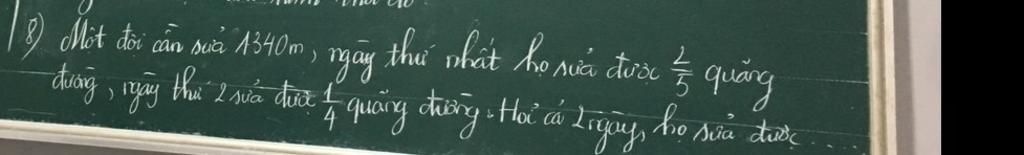 8) Một đội cần sửa 1340m, ngày thứ nhất họ sửa được 2/5 quãng
đường, ngày thứ 2 sửa được 1/4 quãng đường. Hỏi cả 2 ngày, họ sửa được ...